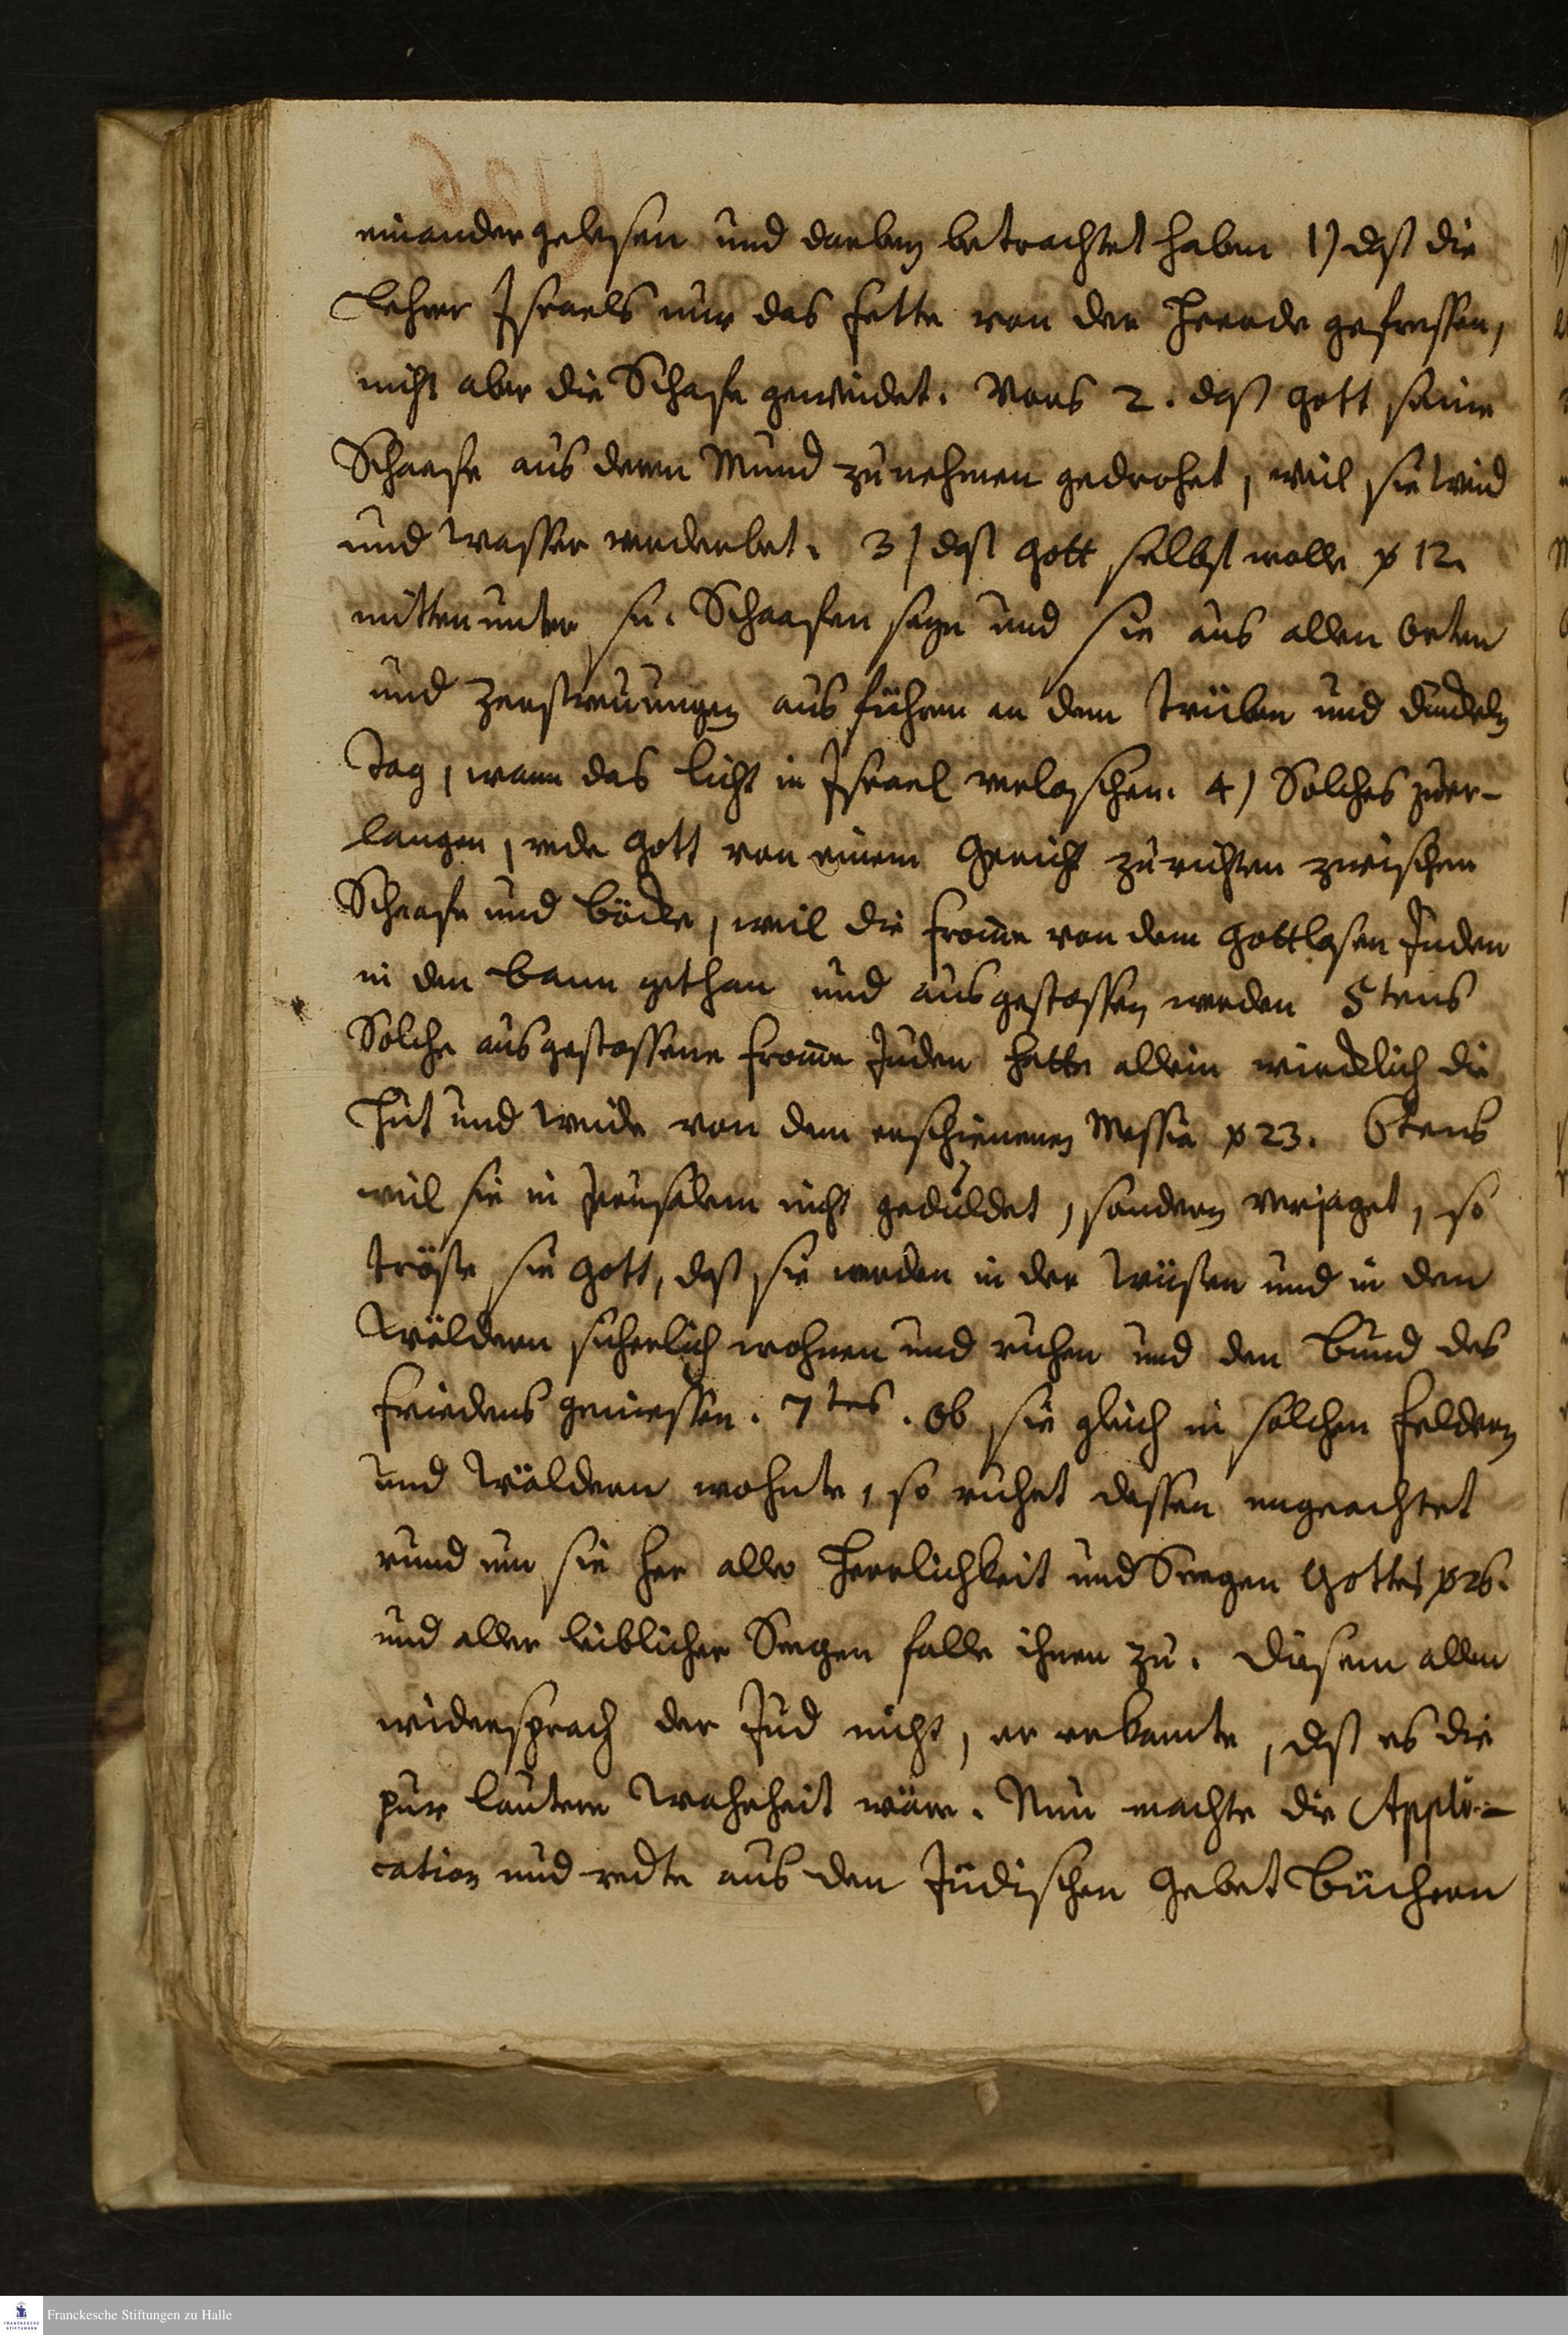 einander gelesen und darbey betrachtet haben 1) daß die
Lehrer Israels nur das fette von der Heerde gefressen,
nicht aber die Schafe geweidet. Vors 2. daß Gott seine
Schaafe aus deren Mund zu nehmen gedrohet, weil sie weid
und wasser verderbet. 3) daß Gott selbst wolle 12.
mitten unter sr. Schaafen seyn und sie aus allen Orten
und Zerstreuungen aus führen an dem trüben und dunckeln
Tag, wann das licht in Israel verloschen. 4) Solches zu er-
langen, rede Gott von einem Gericht zu richten zwischen
Schaafe und böcke, weil die fromme von den Gottlosen Juden
in den bann gethan und ausgestossen werden 5tens
Solche ausgestossene fromme Juden hette allein wircklich die
Hut und weide von dem erschienenen Messia 23. 6tens
weil sie in Jerusalem nicht geduldet, sondern verjaget, so
tröste sie Gott, daß sie werden in der wüsten und in den
wäldern sicherlich wohnen und ruhen und den Bund des
friedens geniessen. 7tes. Ob sie gleich in solchen feldern
und wäldern wohnte, so ruhet dessen ungeachtet
rund um sie her alle Herrlichkeit und Seegen Gottes 26.
und aller leiblicher Segen falle ihnen zu. Diesem allen
widersprach der Jud nicht, er erkante, daß es die
pur lautere wahrheit wäre. Nun machte die Appli-
cation und redte aus den Jüdischen Gebet Büchern
Franckesche Stiftungen zu Halle